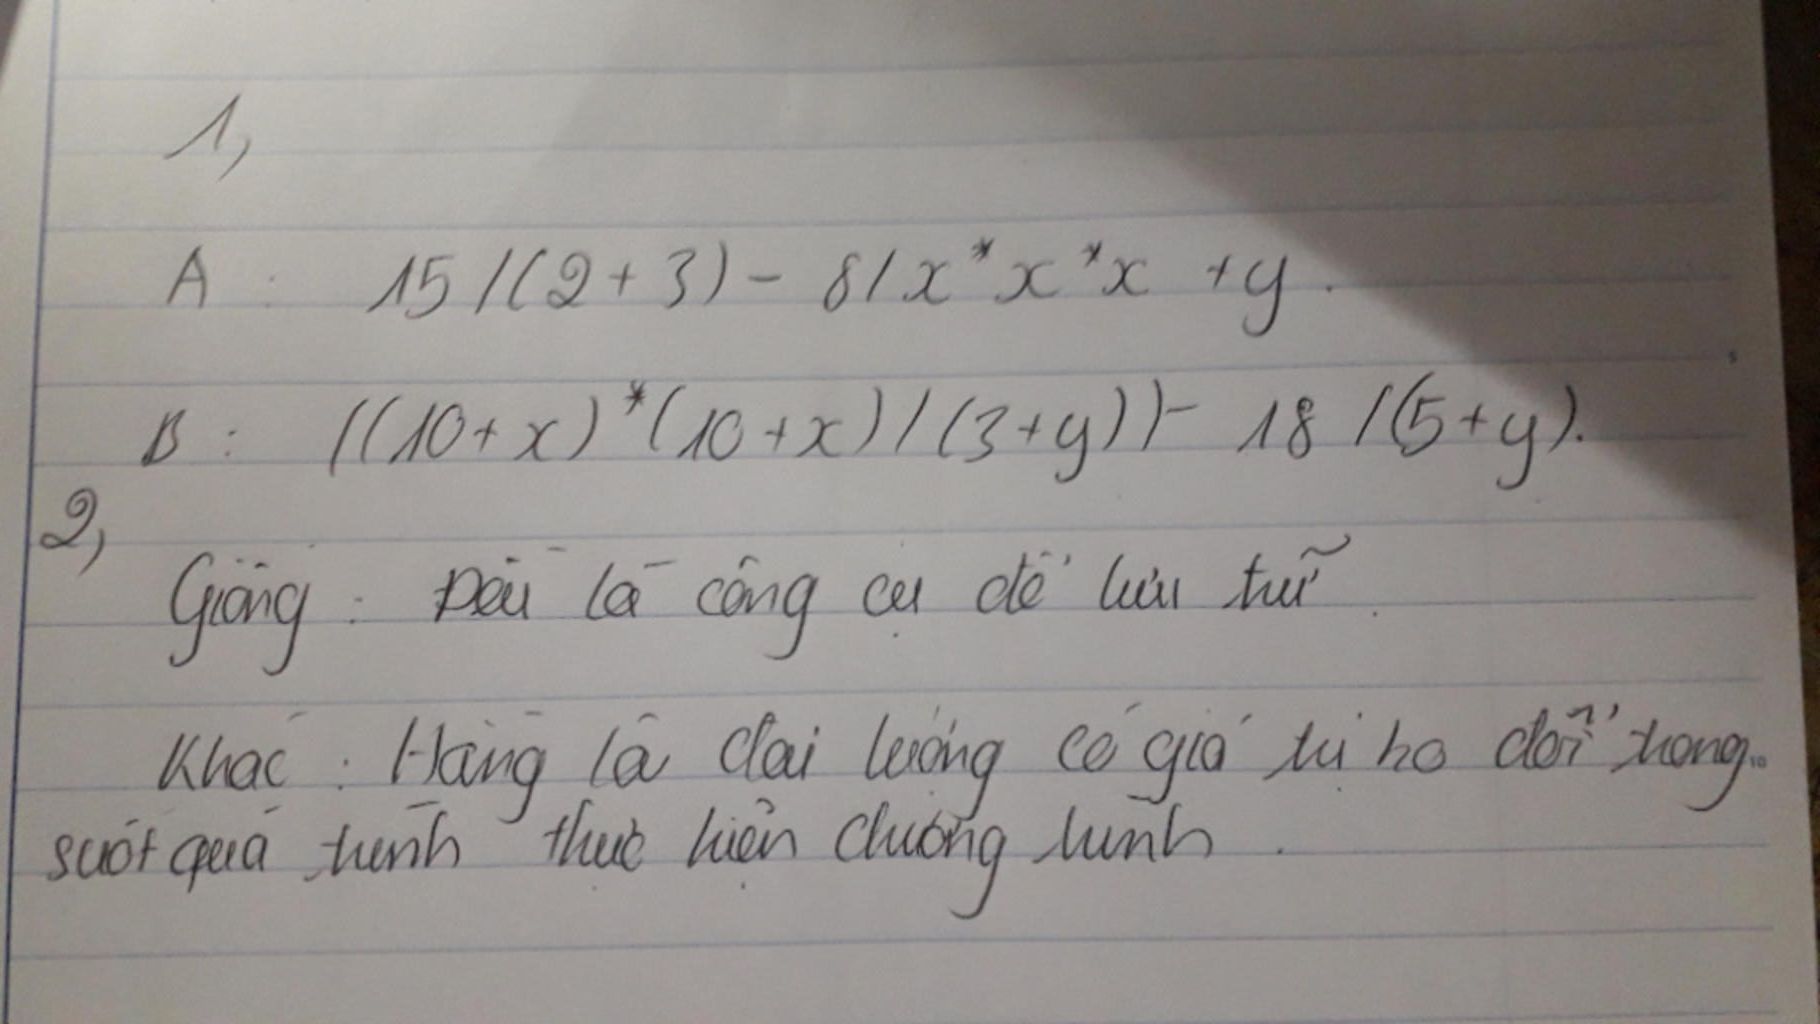 1,
A : 15 / (2 + 3) - 8 / x * x * x + y .
B : ((10 + x) * (10 + x) / (3 + y)) - 18 / (5 + y).
2,
Giống : Đều là công cụ để lưu trữ .
Khác : Hằng là đại lượng có giá trị ko đổi trong..
suốt quá trình thực hiện chương trình .